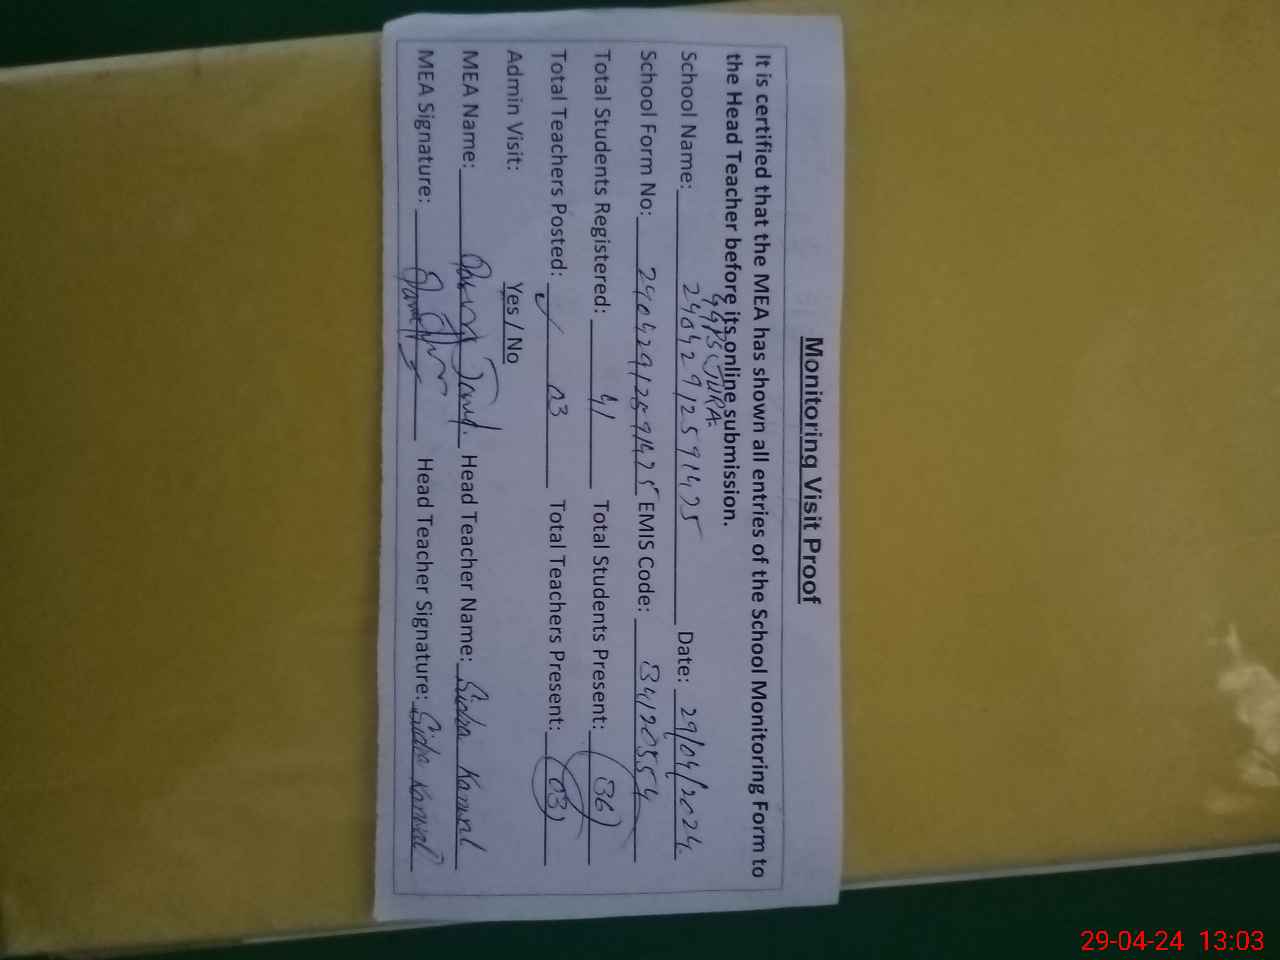 Monitoring Visit Proof
It is certified that the MEA has shown all entries of the School Monitoring Form to
the Head Teacher before its online submission.
GGPS JURA
School Name: 24042912591495 Date: 29/04/2024
School Form No: EMIS Code: 34120554
Total Students Registered: 41 Total Students Present: 36
Total Teachers Posted: 03 Total Teachers Present: 03
Admin Visit: Yes / No
MEA Name: Head Teacher Name: Sidra Kanwal
MEA Signature: Head Teacher Signature: Sidra Kanwal
29-04-24 13:03